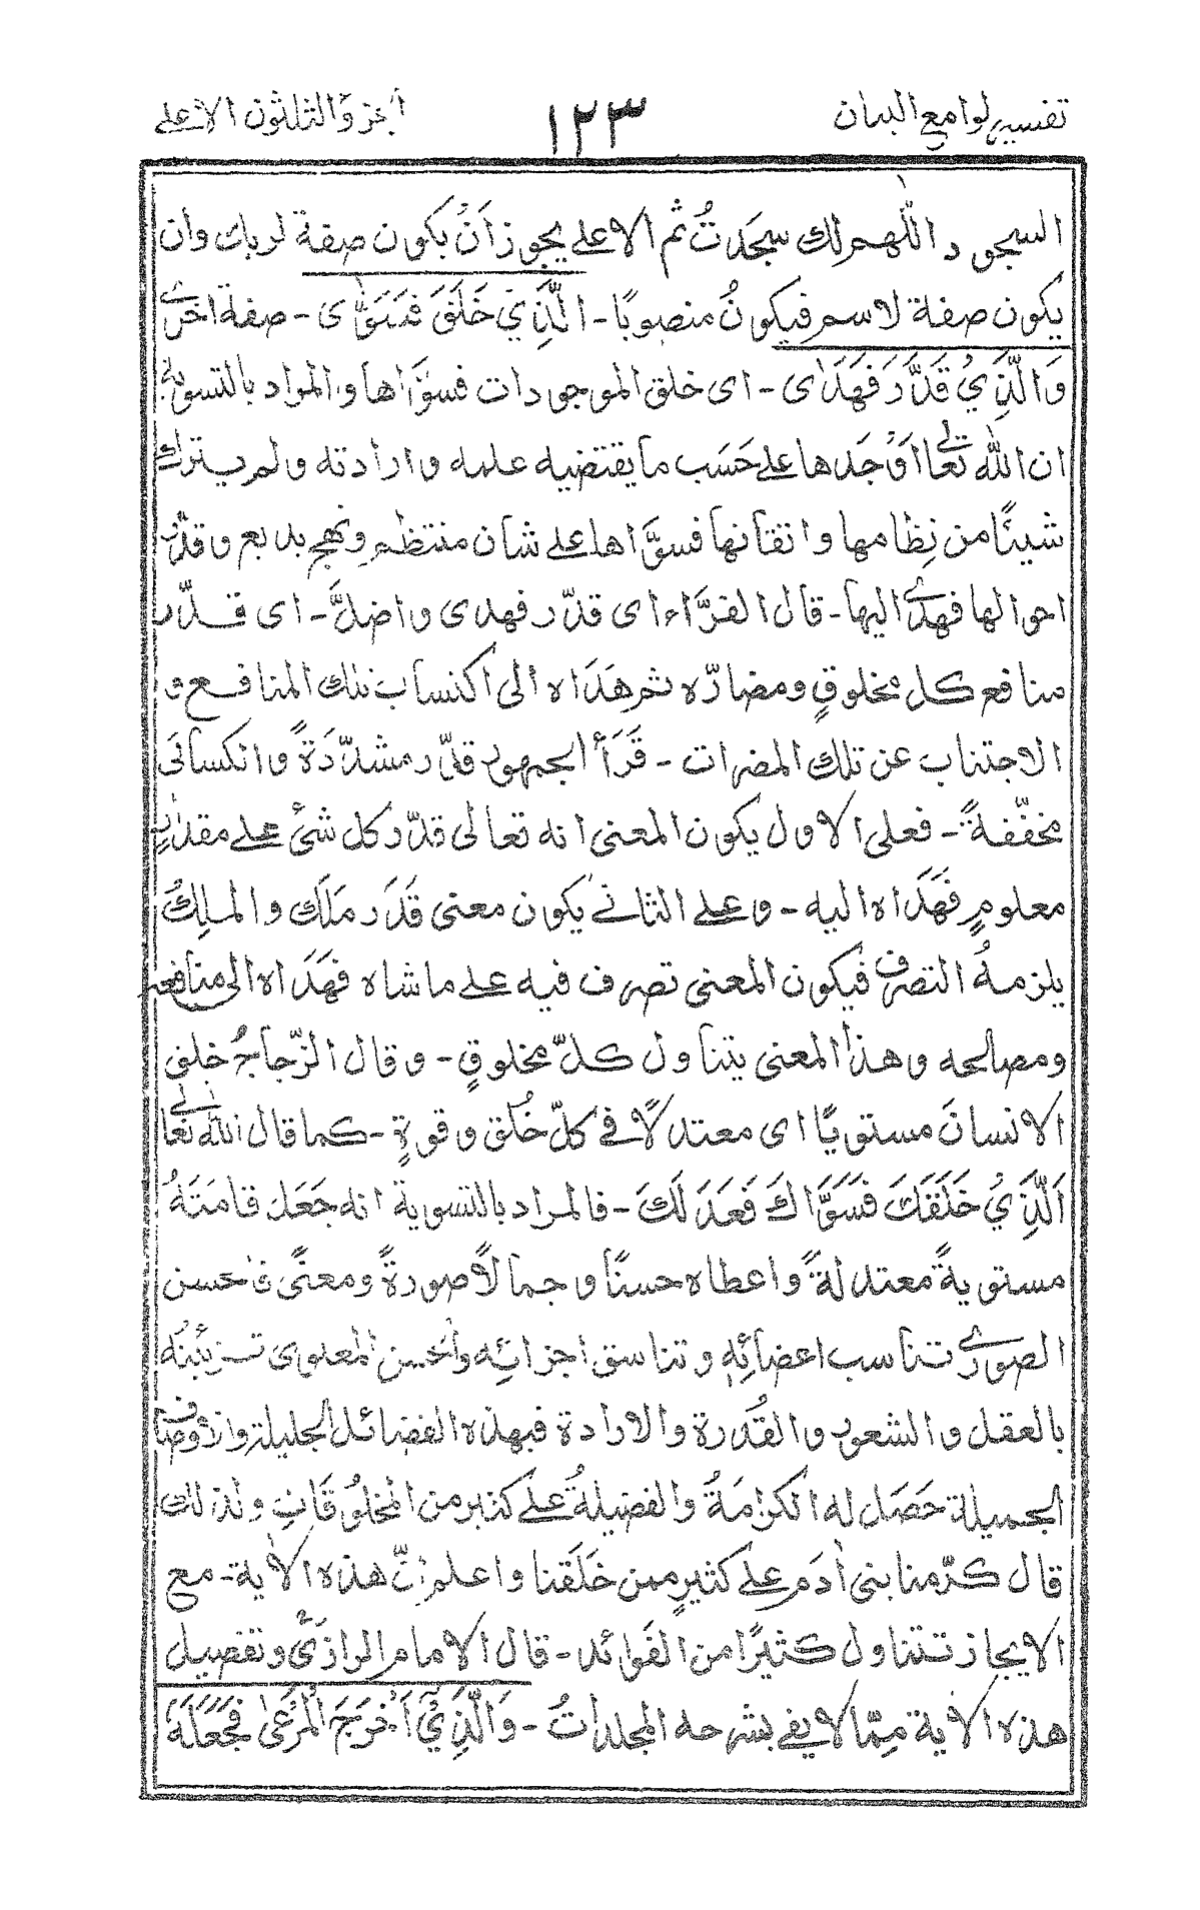 تفسير لوامع البيان ١٢٣ الجزء الثلثون الاعلى
السجود اللّٰهم لك سجدتُ ثم الاعلى يجوز أنْ يكون صفة لربك وان
يكون صفة لاسم فيكونُ منصوبًا - الَّذِيْ خَلَقَ فَسَوّٰى - صفة اخرى
وَالَّذِيْ قَدَّرَ فَهَدَاى - اى خلق الموجودات فسوّاها والمراد بالتسوية
ان اللّٰه تعالى اَوْجَدها على حَسَب ما يقتضيه علمه وارادته ولم يترك
شيئًا من نِظامها واتقانها فسوَّاها على شان منتظمٍ ونهجٍ بديع وقدّر
احوالها فهدى اليها - قال الفرَّاء اى قدّر فهدى واضلَّ - اى قدّر
منافع كل مخلوقٍ ومضارّه ثم هَدَاه الى اكتساب تلك المنافع و
الاجتناب عن تلك المضرات - قَرَأ الجمهور قدّر مشدّدَةً وانكسائى
مخفّفةً - فعلى الاول يكون المعنى انه تعالى قدّر كل شئ على مقدارٍ
معلومٍ فَهَدَاه اليه - وعلى الثانى يكون معنى قَدَر مَلَك والملِكُ
يلزمهُ التصرف فيكون المعنى تصرف فيه على ماشاه فهَدَاه الى منافعه
ومصالحه وهذا المعنى يتناول كلّ مخلوقٍ - وقال الزّجاجُ خلق
الانسانَ مستويًا اى معتدلًا فى كلّ خُلق وقوةٍ - كما قال اللّٰه تعالى
اَلَّذِيْ خَلَقَكَ فَسَوَّاكَ فَعَدَلَكَ - فالمراد بالتسوية انه جَعَلَ قامَتَهُ
مستويةً معتدلةً واعطاه حسنًا وجمالًا صورةً ومعنًى فاحسن
الصورى تناسب اعضائِهِ وتناسق اجزائِه واحسن المعنوى تزيينُه
بالعقل والشعور والقُدرة والارادة فبهذه الفضائل الجليلة والاوصاف
الجميلة حَصَل له الكرامَةُ والفضيلةُ على كثير من المخلوُقات ولذلك
قال كرّمنا بنى اٰدَم على كثيرٍ ممن خَلَقنا واعلم انّ هذه الاٰية - مع
الايجاز تتناول كثيرًا من الفَوائد - قال الامام الرازىّ وتفصيل
هذه الاٰية مِمّا لايفى بشرحه المجلداتُ - وَالَّذِيْٓ اَخْرَجَ الْمَرْعٰى فَجَعَلَهٗ